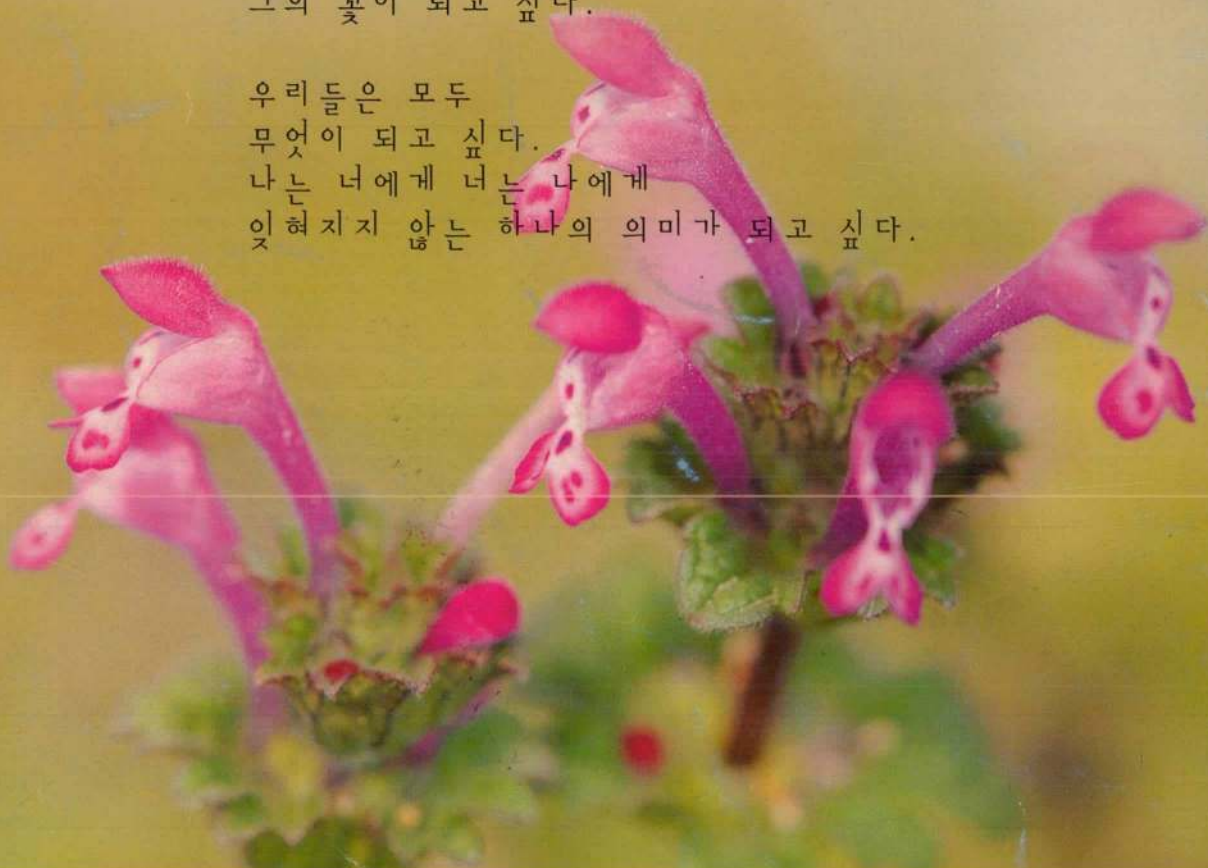 그의 꽃이 되고 싶다.
우리들은 모두
무엇이 되고 싶다.
나는 너에게 너는 나에게
잊혀지지 않는 하나의 의미가 되고 싶다.